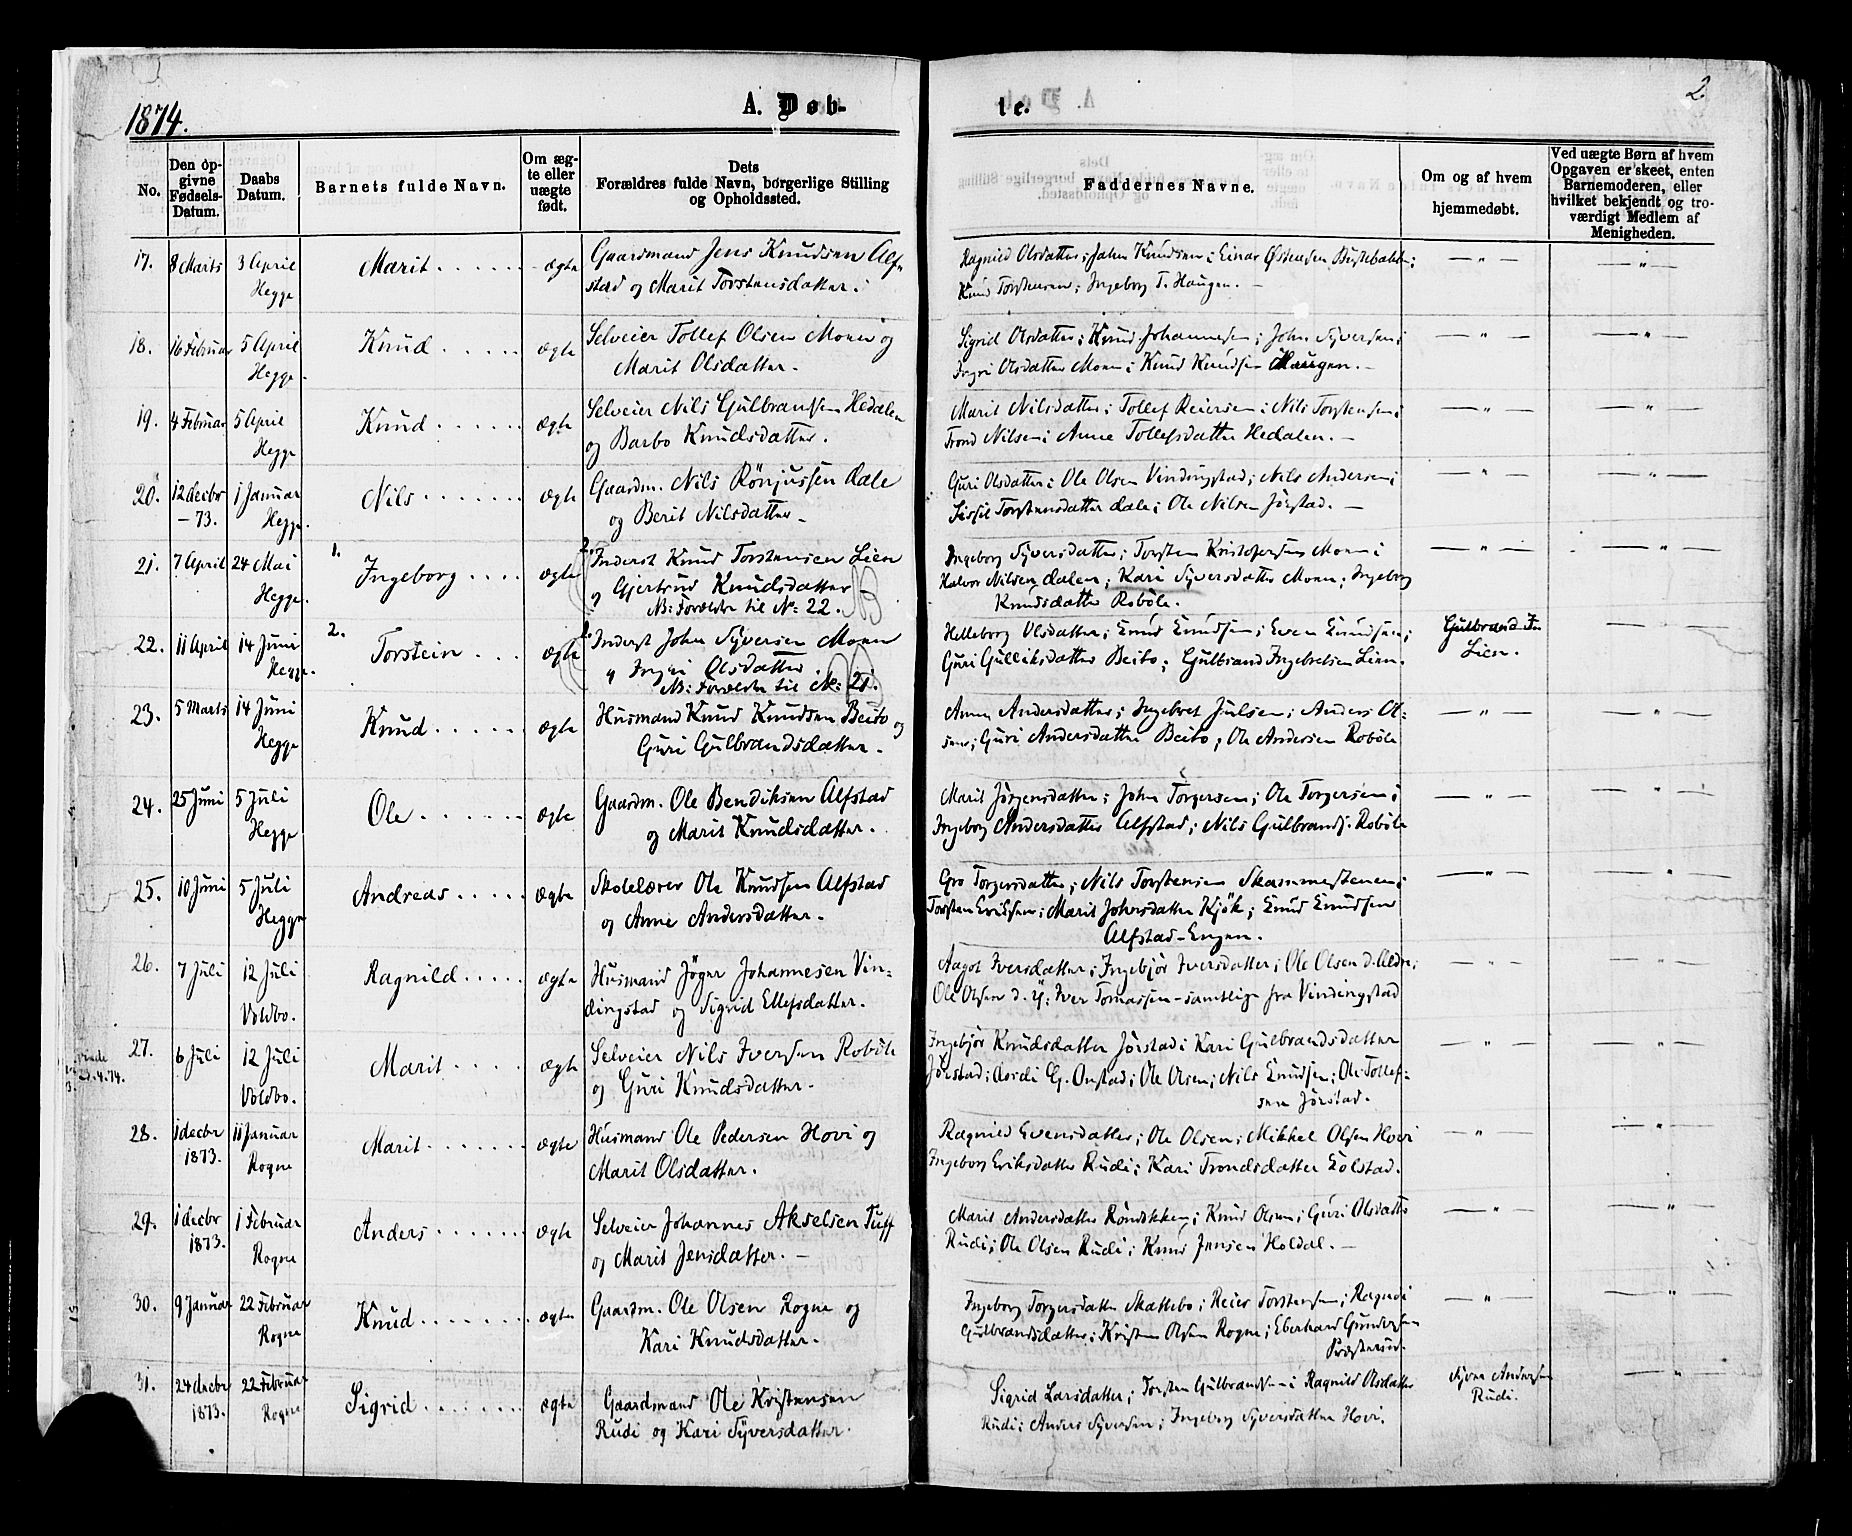 1874.
A. Døb-
te.
2.
No.
Den op-
givne
Fødsels-
Datum.
Daabs
Datum.
Barnets fulde Navn.
Om æg-
te eller
uægte
født.
Dets
Forældres fulde Navn, borgerlige Stilling
og Opholdssted.
Faddernes Navne.
Om og af hvem
hjemmedøbt.
Ved uægte Børn af hvem
Opgaven er skeet, enten
Barnemoderen, eller
hvilket bekjendt og tro-
værdigt Medlem af
Menigheden.
17. 8 Marts 3 April Marit ægte Gaardmand Jens Knudsen Alf-
Hegge stad og Marit Torstensdatter.
Ragnild Olsdatter; John Knudsen; Einar Østensen
Knud Torstensen; Ingeborg T. Haugen.
18. 16 Februar 5 April Knud ægte Selveier Tollef Olsen Moen og
Hegge. Marit Olsdatter.
Sigrid Olsdatter; Knud Johannesen; John Syversen;
Ingri Olsdatter Moen; Knud Knudsen Haugen.
19. 4 Februar 5 April Knud ægte Selveier Nils Gulbransen Hedalen
Hegge og Barbo Knudsdatter.
Marit Nilsdatter; Tollef Reiersen; Nils Torstensen;
Trond Nilsen; Anne Tollefsdatter Hedalen.
20. 12 decbr 1 Januar Nils ægte Gaardm. Nils Rönjussen Dale
- 73. Hegge. og Berit Nilsdatter
Guri Olsdatter; Ole Olsen Vindingstad; Nils Andersen;
Sissil Torstensdatter Dale; Ole Nilsen Jørstad.
21. 7 April 24 Mai 1. Ingeborg ægte 2. Inderst Knud Torstensen Lien
Hegge. og Gjertrud Knudsdatter
NB: Forældre til No: 22. NB
Ingeborg Syversdatter; Torsten Kristofersen Moen;
Halvor Nilsen Dalen; Kari Syversdatter Moen; Ingeborg
Knudsdatter Robøle.
22. 11 April 14 Juni 2. Torstein ægte 1. Inderst John Syversen Moen
Hegge. " Ingri Olsdatter.
NB: Forældre til No: 21. NB
Helleborg Olsdatter; Knud Knudsen; Even Knudsen;
Guri Gulliksdatter Beito; Gulbrand Ingebretsen Lien.
Gulbrand
Lien.
23. 5 Marts 14 Juni Knud ægte Husmand Knud Knudsen Beito og
Hegge Guri Gulbrandsdatter.
Anne Andersdatter; Ingebret Julsen; Anders Ol-
sen; Guri Andersdatter Beito; Ole Andersen Robøle
24. 25 Juni 5 Juli Ole ægte Gaardm. Ole Bendiksen Alfstad
Hegge og Marit Knudsdatter.
Marit Jørgensdatter; John Torgersen; Ole Torgersen;
Ingeborg Andersdatter Alfstad; Nils Gulbrands. Robøle
25. 10 Juni 5 Juli Andreas ægte Skolelærer Ole Knudsen Alfstad
Hegge og Anne Andersdatter.
Gro Torgersdatter; Nils Torstensen Skammestenen;
Torsten Eriksen; Marit Johnsdatter Kjøk; Knud Knudsen
Alfstad-Engen.
26. 7 Juli 12 Juli Ragnild ægte Husmand Jöger Johannesen Vin-
Voldbo. dingstad og Sigrid Ellefsdatter.
Aagot Iversdatter; Ingebjør Iversdatter; Ole Olsen d. Ældre;
Ole Olsen d. Y; Iver Tomassen - samtlige fra Vindingstad
27. 6 Juli 12 Juli Marit ægte Selveier Nils Iversen Robøle
Voldbo. og Guri Knudsdatter.
Ingebjør Knudsdatter Jørstad; Kari Gulbrandsdatter
Jørstad; G. Onstad; Ole Olsen; Nils Knudsen; Ole Tollef-
sen Jørstad.
28. 1 decbr 11 Januar Marit ægte Husmand Ole Pedersen Hovi og
1873. Rogne Marit Olsdatter.
Ragnild Evensdatter; Ole Olsen; Mikkel Olsen Hovi
Ingeborg Eriksdatter Rudi; Kari Trondsdatter Kolstad.
29. 1 decbr 1 Februar Anders ægte Selveier Johannes Akselsen Tuff
1873. Rogne og Marit Jensdatter.
Marit Andersdatter; Knud Olsen; Guri Olsdatter
Rudi; Ole Olsen Rudi; Knud Jensen Holdal.
30. 9 Januar 22 Februar Knud ægte Gaardm. Ole Olsen Rogne og
Rogne Kari Knudsdatter.
Ingeborg Torgersdatter Skattebo; Reier Torstensen; Ragndi
Gulbrandsdatter; Kristen Olsen Rogne; Eberhard Gundersen
31. 24 decbr 22 Februar Sigrid ægte Gaardmand Ole Kristensen
1873. Rogne Rudi og Kari Syversdatter.
Sigrid Larsdatter; Torsten Gulbrandsen; Ragnild Olsdatter
Rudi; Anders Syversen; Ingeborg Syversdatter Hovi.
Andersen
Rudi.